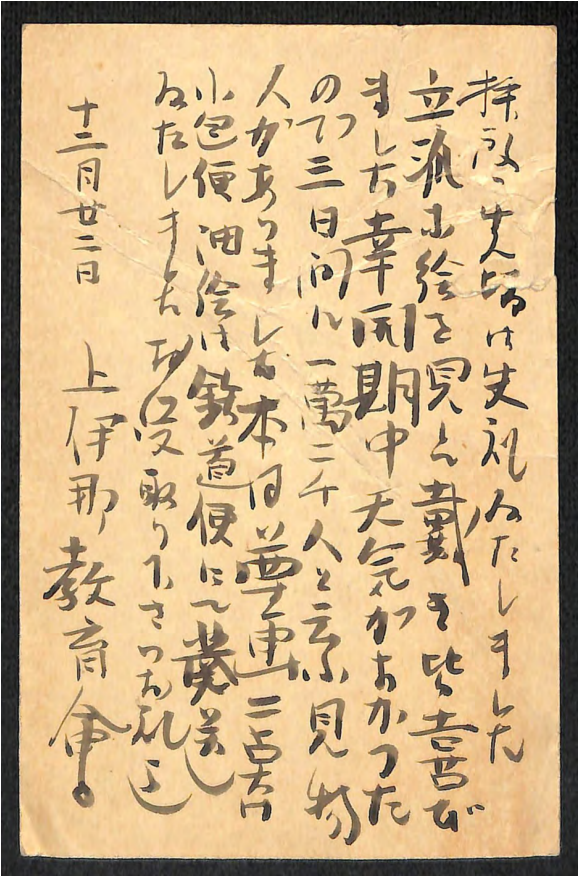 拝啓 先頃は失礼いたしました
立派な絵を見せて戴き皆喜び
ました 幸開期中天気がよかつた
ので三日間に一萬二千人と云ふ見物
人がありました 本日 尊画二点だけ
小包便 油絵は鉄道便にて発送し
ゐたしました お受取り下さつ 礼
十二月廿二日 上伊那教育会